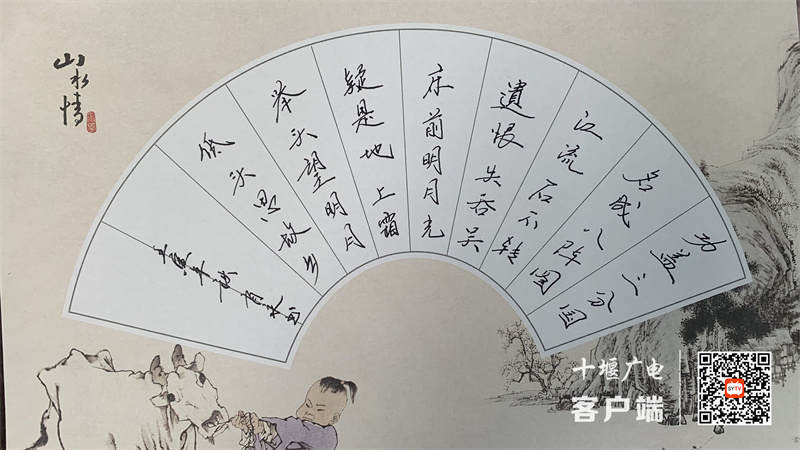 山水情
功盖三分国
名成八阵图
江流石不转
遗恨失吞吴
床前明月光
疑是地上霜
举头望明月
低头思故乡
十堰广电
客户端
SYTV